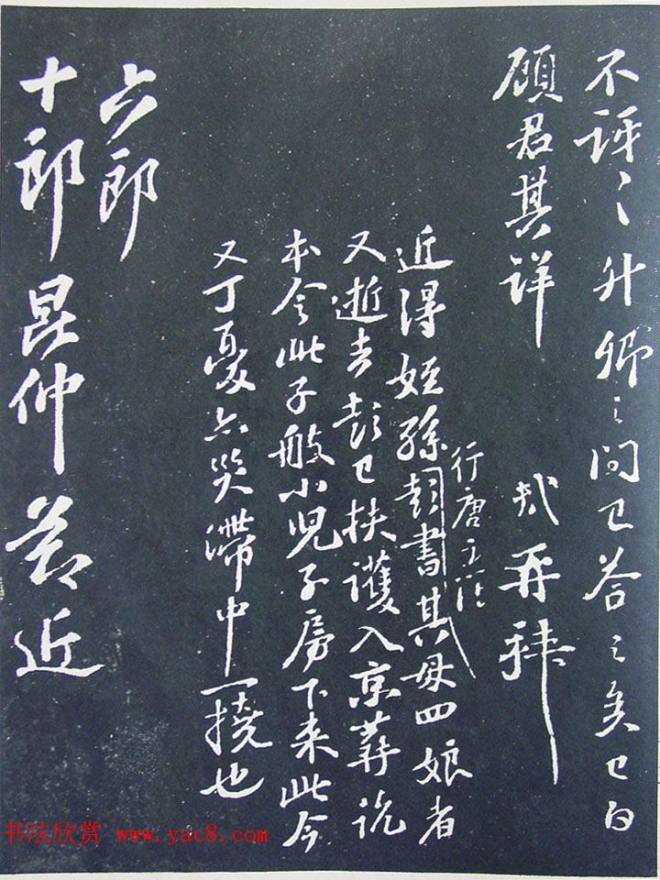 不訝〻升卿之問已答之矣已白
顧君其詳 軾再拜
近得姪孫彭書其母四娘者
行唐主簿
又逝去彭已扶護入京葬訖
本令此子般小兒子房下來此今
又丁憂亦災滯中一撓也
六郎
十郎昆仲 近
书法欣赏 www.yac8.com